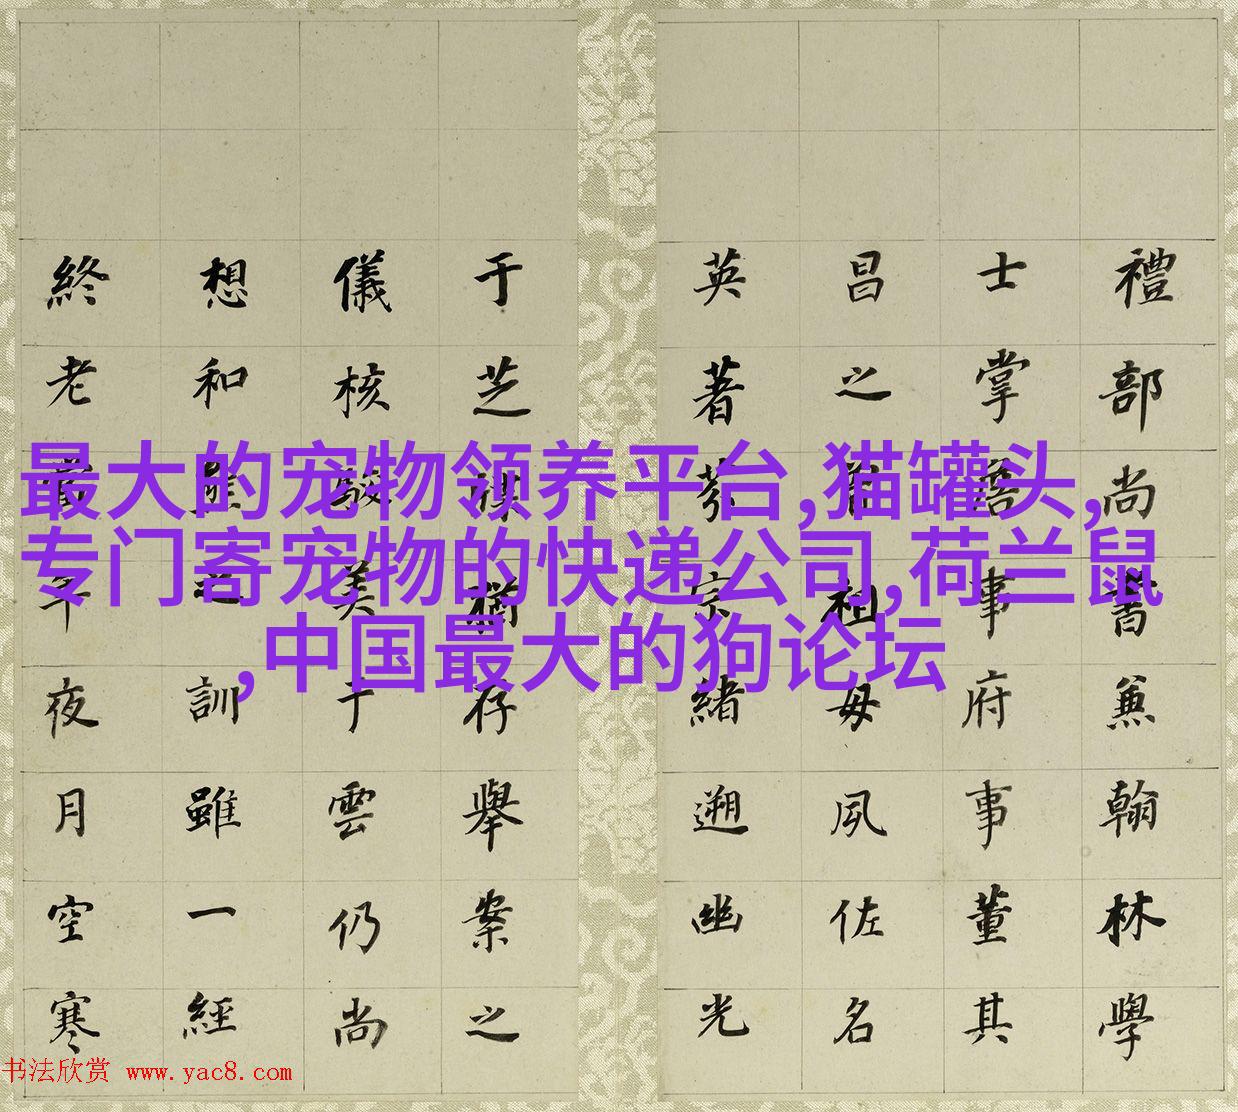 禮部尚書兼翰林學
士掌詹事府事董其
昌之曾祖母夙佐名
英著芬宗緒遡幽光
于芝猶存舉案之
儀核駿美于雲仍尚
想和之訓雖一經
終老年夜月空寒
最大的宠物领养平台,猫罐头,
专门寄宠物的快递公司,荷兰鼠
,中国最大的狗论坛
书法欣赏 www.yac8.com